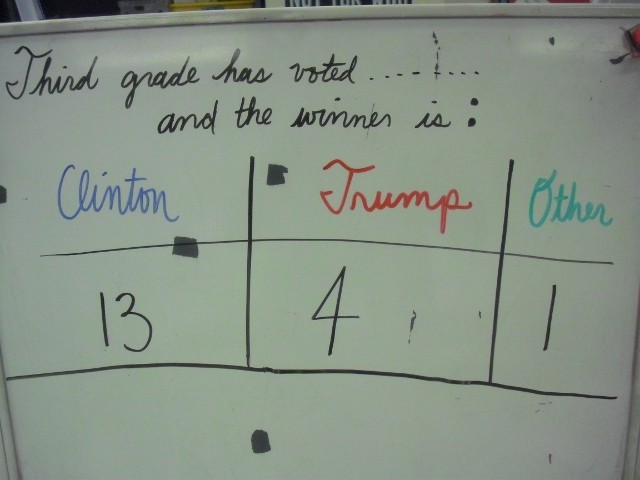 Third grade has voted ........
and the winner is :
Clinton Trump Other
13 4 1